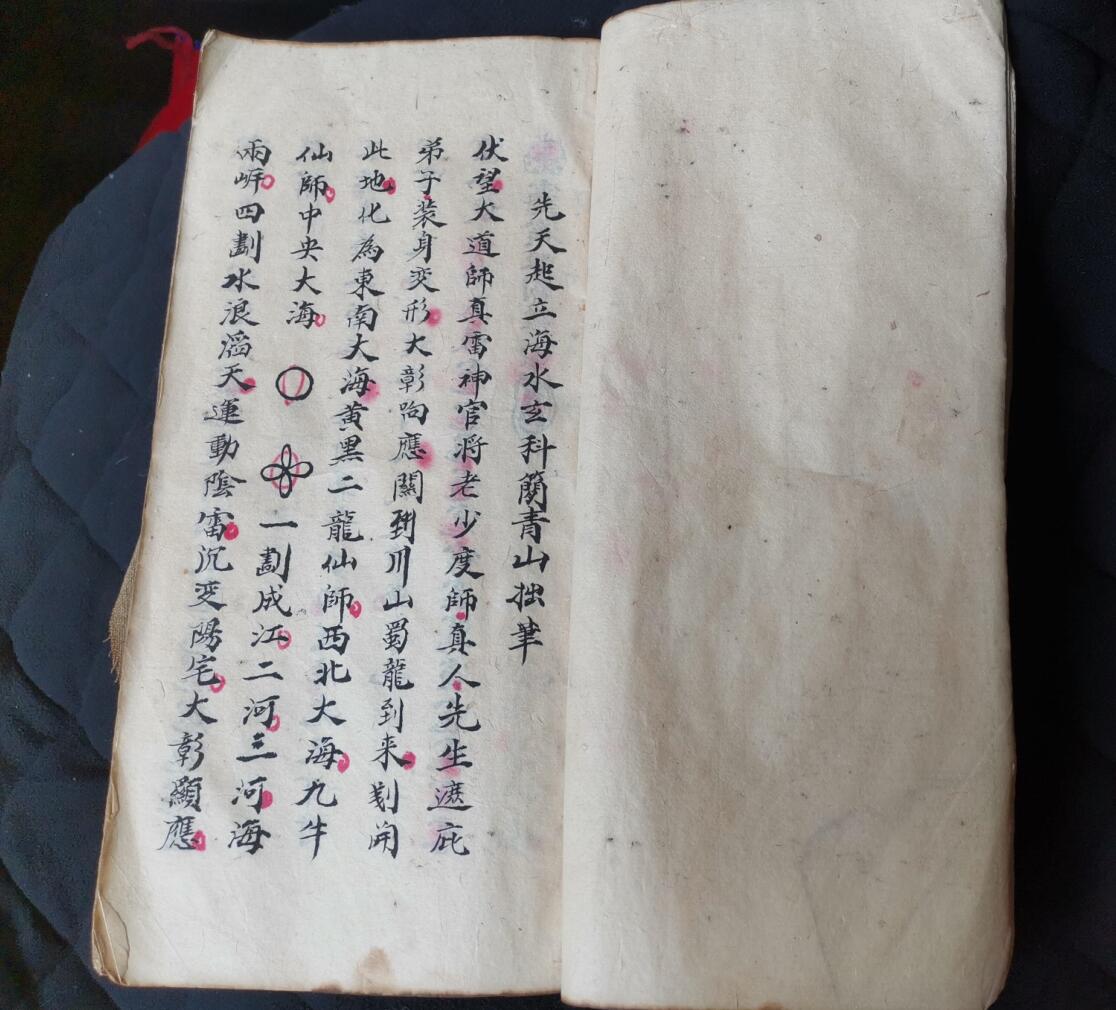 先天起立海水玄科簡青山拙筆
伏望大道師真雷神官将老少度師真人先生遮庇
弟子装身变形大彰响應關到川山蜀龍到来剗開
此地化為東南大海黄黑二龍仙師西北大海九牛
仙師中央大海一劃成江二河三河海
兩岍四劃水浪滔天運動陰雷沉变陽宅大彰顯應